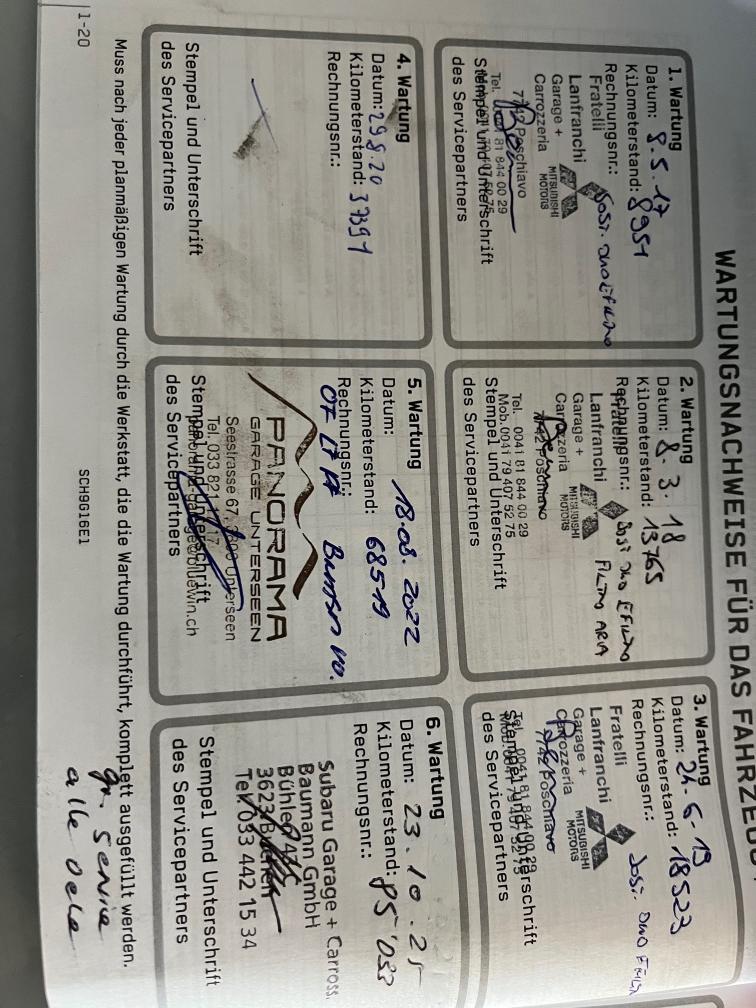 WARTUNGSNACHWEISE FÜR DAS FAHRZEUG
1. Wartung
Datum: 8.5.17
Kilometerstand: 8951
Rechnungsnr.:
Fratelli
Lanfranchi
Garage +
Carrozzeria
MITSUBISHI
MOTORS
7742 Poschiavo
Tel. 0041 81 844 00 29
Stempel und Unterschrift
des Servicepartners
2. Wartung
Datum: 8.3.18
Kilometerstand: 13765
Rechnungsnr.:
Fratelli
Lanfranchi
Garage +
Carrozzeria
MITSUBISHI
MOTORS
7742 Poschiavo
Tel. 0041 81 844 00 29
Mob. 0041 79 407 52 75
Stempel und Unterschrift
des Servicepartners
3. Wartung
Datum: 26-6-19
Kilometerstand: 18523
Rechnungsnr.:
Fratelli
Lanfranchi
Garage +
Carrozzeria
MITSUBISHI
MOTORS
7742 Poschiavo
Tel. 0041 81 844 00 29
Stempel und Unterschrift
des Servicepartners
4. Wartung
Datum: 29.8.20
Kilometerstand: 37391
Rechnungsnr.:
Stempel und Unterschrift
des Servicepartners
5. Wartung
Datum: 18.08.2022
Kilometerstand: 68519
Rechnungsnr.:
PANORAMA
GARAGE UNTERSEEN
Seestrasse 67, 3800 Unterseen
Tel. 033 821
Stempel und Unterschrift
des Servicepartners
6. Wartung
Datum: 23.10.25
Kilometerstand: 85'033
Rechnungsnr.:
Subaru Garage + Carross.
Baumann GmbH
Bühler
3623
Tel 033 442 15 34
Stempel und Unterschrift
des Servicepartners
Muss nach jeder planmäßigen Wartung durch die Werkstatt, die die Wartung durchführt, komplett ausgefüllt werden.
gr. Service
alle Oele
1-20
SCH9616E1